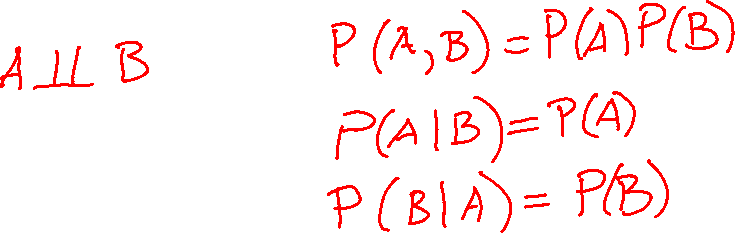 A ⊥⊥ B
P(A,B)=P(A)P(B)
P(A|B)=P(A)
P(B|A)=P(B)